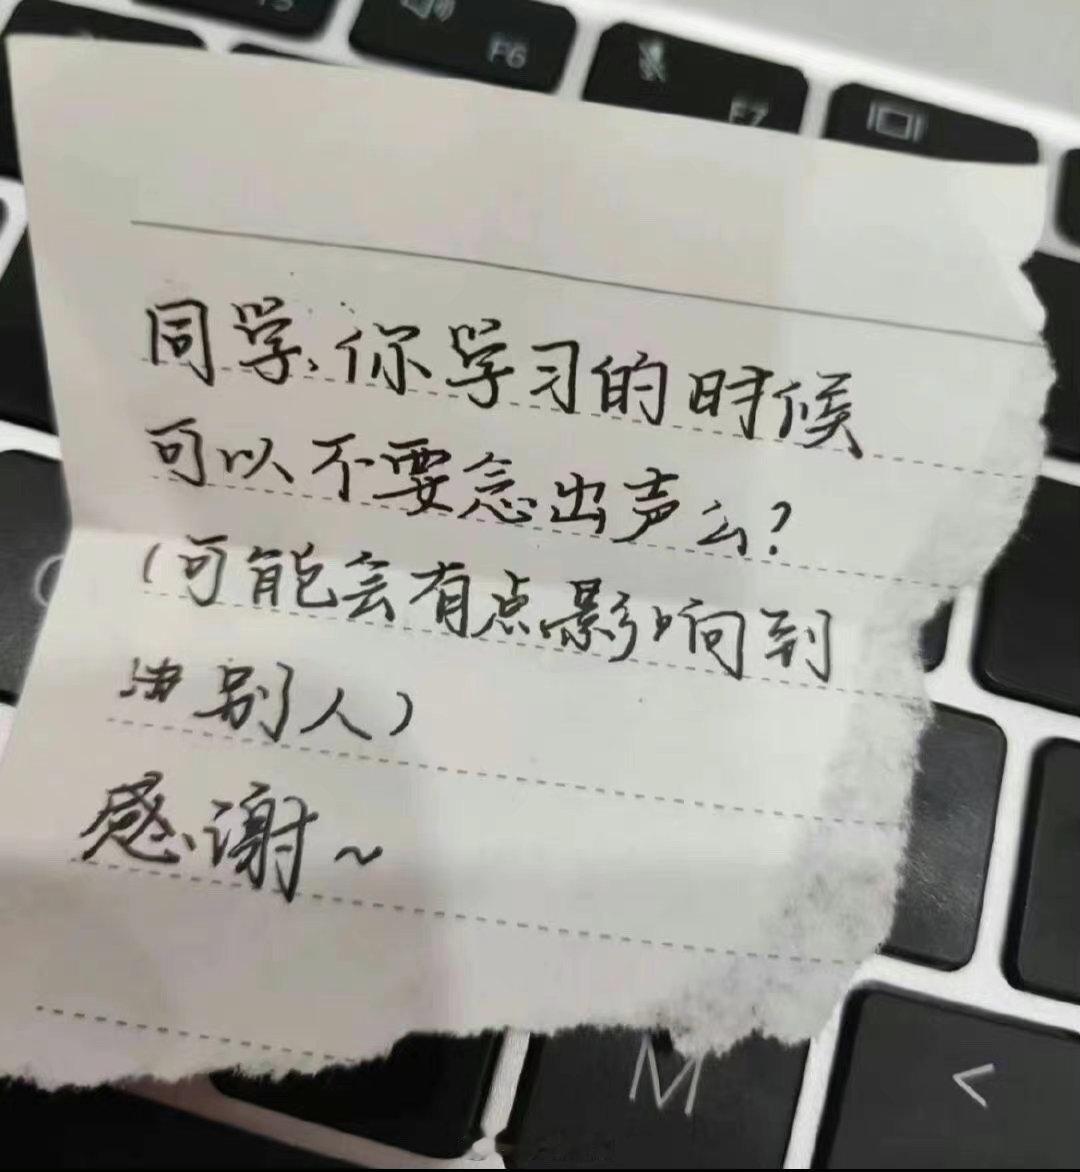 F6
F7
同学,你学习的时候
可以不要念出声么?
(可能会有点影响到
别人)
感谢~
M
<